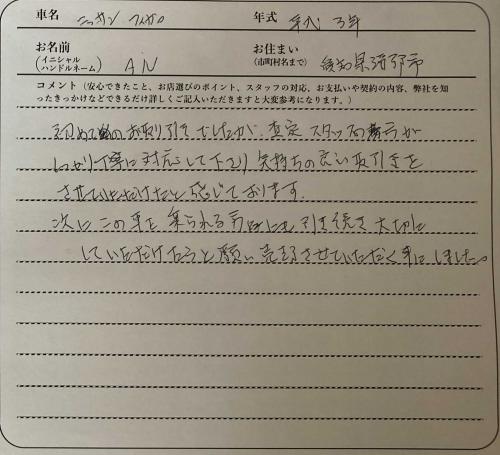 車名 ニッサン フィガロ 年式 平成 3年
お名前 (イニシャル ハンドルネーム) A N お住まい (市町村名まで) 愛知県蒲郡市
コメント（安心できたこと、お店選びのポイント、スタッフの対応、お支払いや契約の内容、弊社を知
ったきっかけなどできるだけ詳しくご記入いただきますと大変参考になります。）
初めてのお取り引きでしたが、査定スタッフの方が
しっかり丁寧に対応して下さり気持ちの良い取引きを
させていただけたと感じております。
次にこの車を乗られる方にも引き続き大切に
していただけたらと願い売却させていただく事にしました。